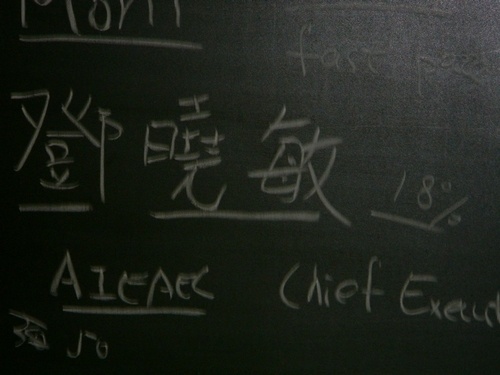 fast
鄧曉敏
18%
AIESEC Chief Execu
50